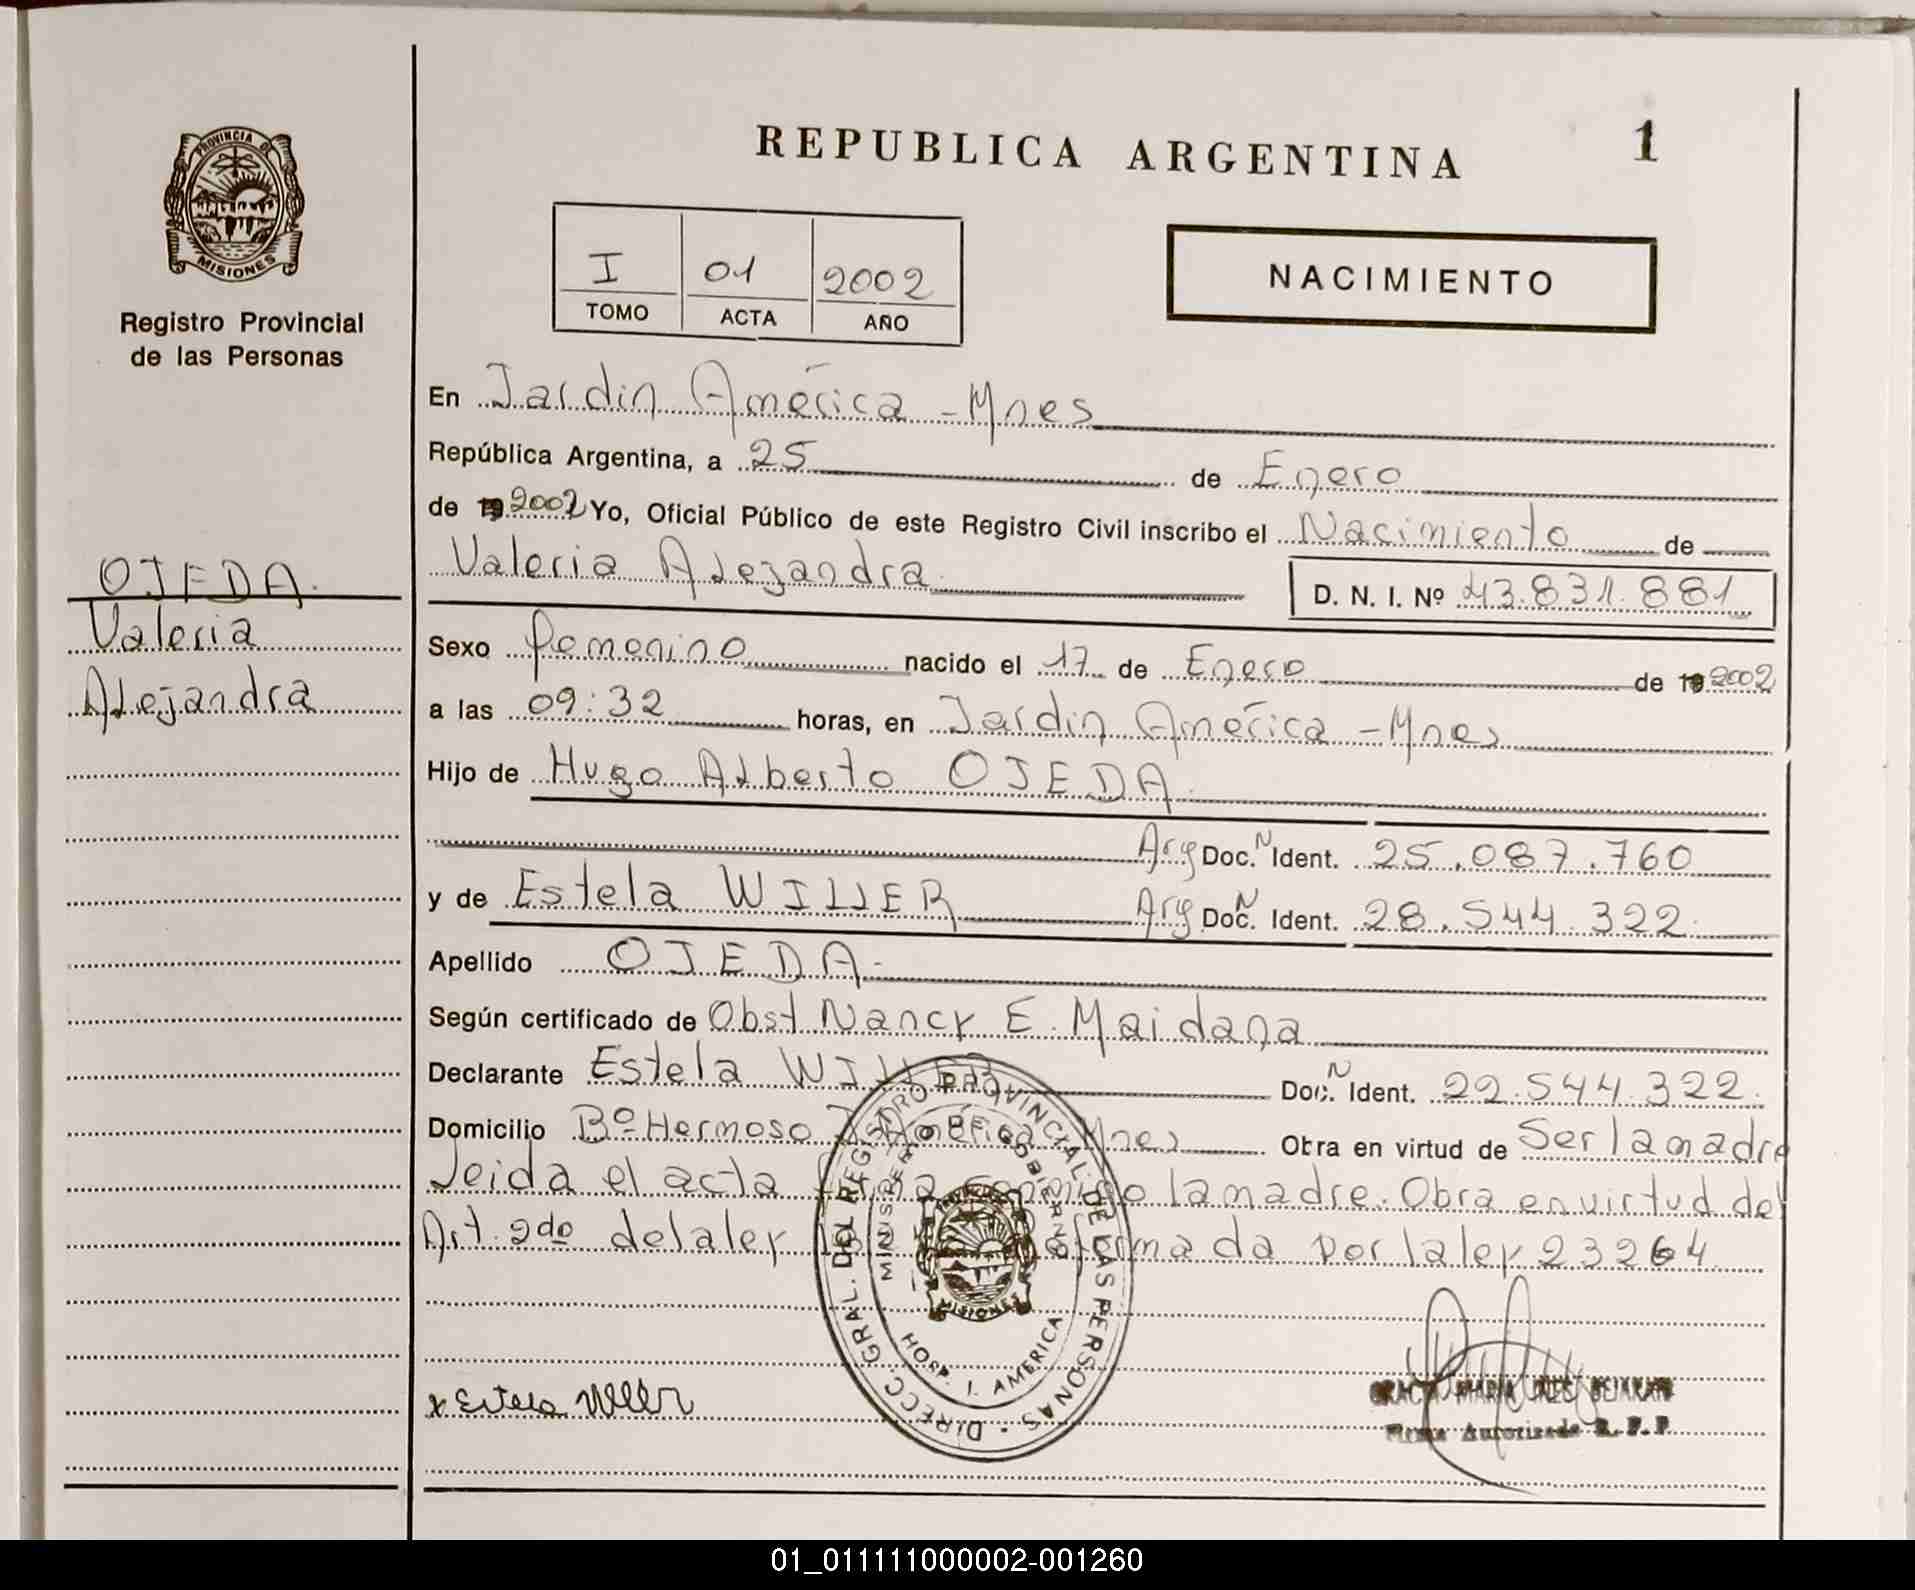 PROVINCIA DE
MISIONES
Registro Provincial
de las Personas
OJEDA.
Valeria
Alejandra
REPUBLICA ARGENTINA
1
I
TOMO
01
ACTA
2002
AÑO
NACIMIENTO
En Jardin América -Mnes
República Argentina, a 25 de Enero
de 19 2002 Yo, Oficial Público de este Registro Civil inscribo el Nacimiento de
Valeria Alejandra.
D. N. I. Nº 43.831.881
Sexo femenino nacido el 17 de Enero de 19 2002
a las 09:32 horas, en Jardin América -Mnes
Hijo de Hugo Alberto OJEDA.
Arg Doc. N Ident. 25.087.760
y de Estela WILLER Arg Doc. N Ident. 28.544.322.
Apellido OJEDA.
Según certificado de Obst Nancy E. Maidana
Declarante Estela WILLER Doc. N Ident. 22.544.322.
Domicilio Bº Hermoso J. América Mnes Obra en virtud de Ser la madre
Leida el acta firma conmigo la madre. Obra en virtud del
Art. 2do de la ley reformada por la ley 23264
DIRECC. GRAL. DEL REGISTRO PROVINCIAL DE LAS PERSONAS
MINISTERIO DE GOBIERNO
MISIONES
HOSP. J. AMERICA
x Estela Willer
MARIA INES
Firma Autorizada R. P. P.
01_011111000002-001260